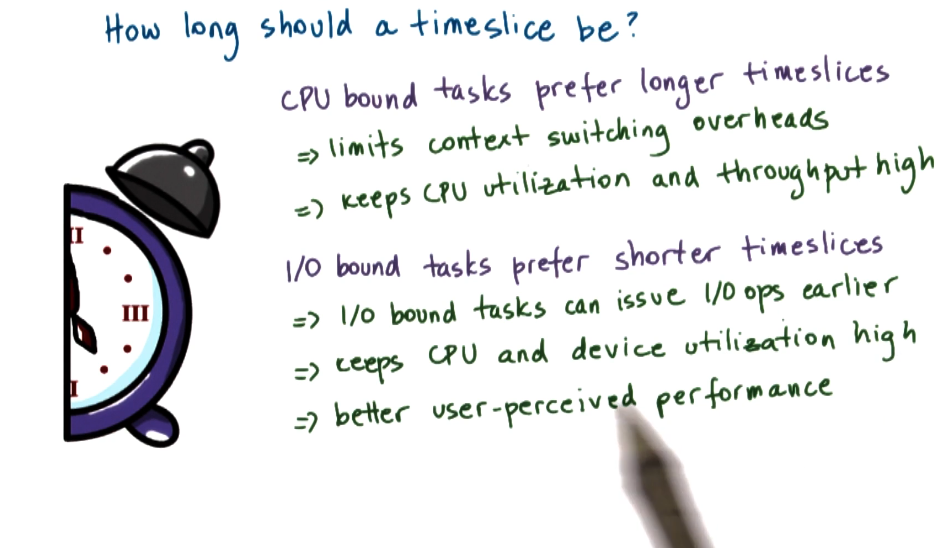 How long should a timeslice be?
CPU bound tasks prefer longer timeslices
=> limits context switching overheads
=> keeps CPU utilization and throughput high
I/O bound tasks prefer shorter timeslices
=> I/O bound tasks can issue I/O ops earlier
=> keeps CPU and device utilization high
=> better user-perceived performance
III